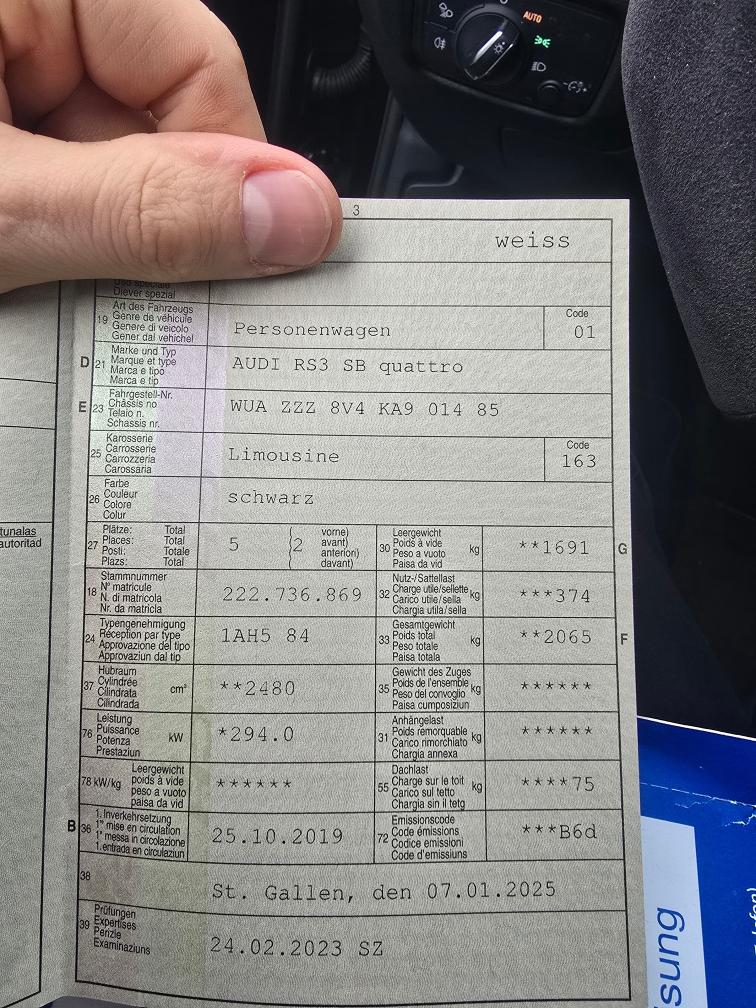 AUTO
3
weiss
Uso speciale
Diever spezial
19
Art des Fahrzeugs
Genre de véhicule
Genere di veicolo
Gener dal vehichel
Personenwagen
Code
01
D
21
Marke und Typ
Marque et type
Marca e tipo
Marca e tip
AUDI RS3 SB quattro
E
23
Fahrgestell-Nr.
Châssis no
Telaio n.
Schassis nr.
WUA ZZZ 8V4 KA9 014 85
25
Karosserie
Carrosserie
Carrozzeria
Carossaria
Limousine
Code
163
26
Farbe
Couleur
Colore
Colur
schwarz
tunalas
autoritad
27
Plätze: Total
Places: Total
Posti: Totale
Plazs: Total
5
(2
vorne)
avant)
anteriori)
davant)
30
Leergewicht
Poids à vide
Peso a vuoto
Paisa da vid
kg
**1691
G
18
Stammnummer
N° matricule
N. di matricola
Nr. da matricla
222.736.869
32
Nutz-/Sattellast
Charge utile/sellette
Carico utile/sella
Chargia utila/sella
kg
***374
24
Typengenehmigung
Réception par type
Approvazione del tipo
Approvaziun dal tip
1AH5 84
33
Gesamtgewicht
Poids total
Peso totale
Paisa totala
kg
**2065
F
37
Hubraum
Cylindrée
Cilindrata
Cilindrada
cm³
**2480
35
Gewicht des Zuges
Poids de l'ensemble
Peso del convoglio
Paisa cumposiziun
kg
******
76
Leistung
Puissance
Potenza
Prestaziun
kW
*294.0
31
Anhängelast
Poids remorquable
Carico rimorchiato
Chargia annexa
kg
******
78 kW/kg
Leergewicht
poids à vide
peso a vuoto
paisa da vid
******
55
Dachlast
Charge sur le toit
Carico sul tetto
Chargia sin il tetg
kg
****75
B
36
1. Inverkehrsetzung
1re mise en circulation
1a messa in circolazione
1. entrada en circulaziun
25.10.2019
72
Emissionscode
Code émissions
Codice emissioni
Code d'emissiuns
***B6d
38
St. Gallen, den 07.01.2025
39
Prüfungen
Expertises
Perizie
Examinaziuns
24.02.2023 SZ
sung